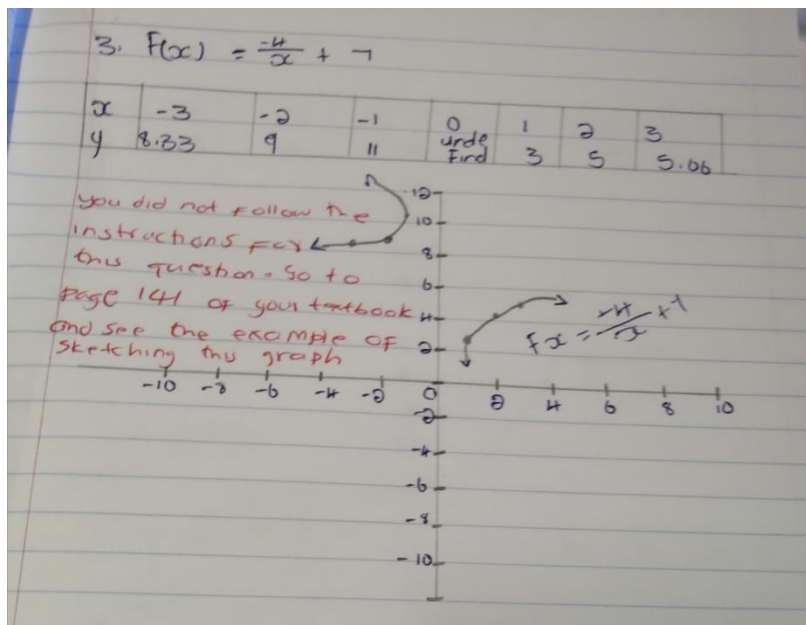 3. F(x) = -4/x + 7
x -3 -2 -1 0 1 2 3
y 8.33 9 11 unde Find 3 5 5.06
you did not follow the
instructions For
this question. So to
page 141 of your textbook
and see the example of
sketching this graph
12
10
8
6
4
2
-10 -8 -6 -4 -2 0 2 4 6 8 10
-2
-4
-6
-8
-10
fx = -4/x + 7